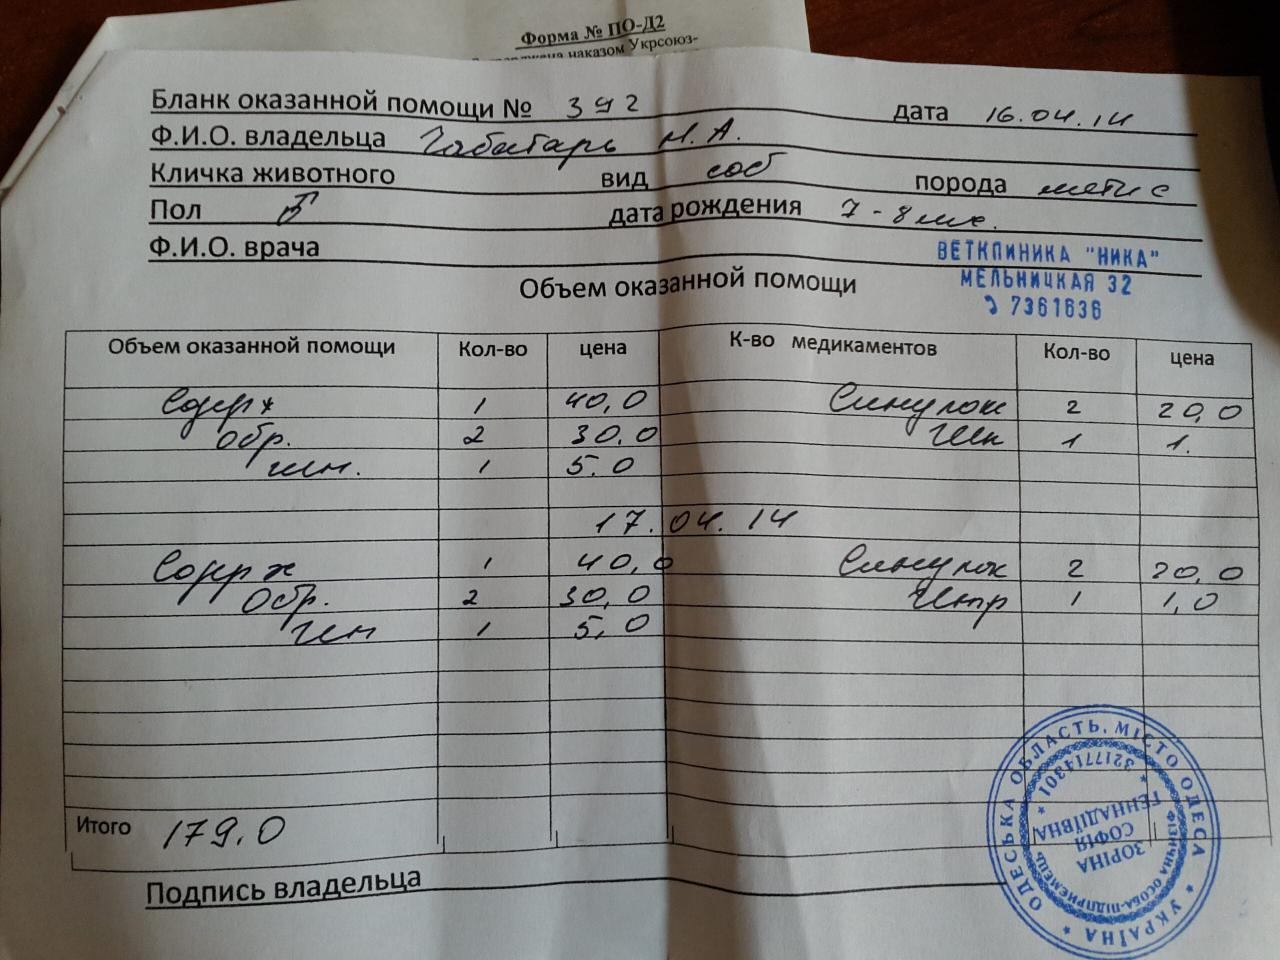 Форма № ПО-Д2
наказом Укрсоюз-
Бланк оказанной помощи № 392 дата 16.04.14
Ф.И.О. владельца Чабатарь М.А.
Кличка животного вид соб порода метис
Пол ♂ дата рождения 7-8 мес.
Ф.И.О. врача
ВЕТКЛИНИКА "НИКА"
МЕЛЬНИЦКАЯ 32
7361636
Объем оказанной помощи
Объем оказанной помощи Кол-во цена К-во медикаментов Кол-во цена
Содерж 1 40,0 Синулокс 2 20,0
обр. 2 30.0 1 1.
ин. 1 5.0
17.04.14
Содерж 1 40,0 Синулокс 2 20,0
Обр. 2 30,0 1 1,0
ин 1 5,0
Итого 179.0
Подпись владельца
ОДЕСЬКА ОБЛАСТЬ, МІСТО ОДЕСА * УКРАЇНА *
ФІЗИЧНА ОСОБА-ПІДПРИЄМЕЦЬ * 3217714301 *
ЗОРІНА
СОФІЯ
ГЕННАДІЇВНА